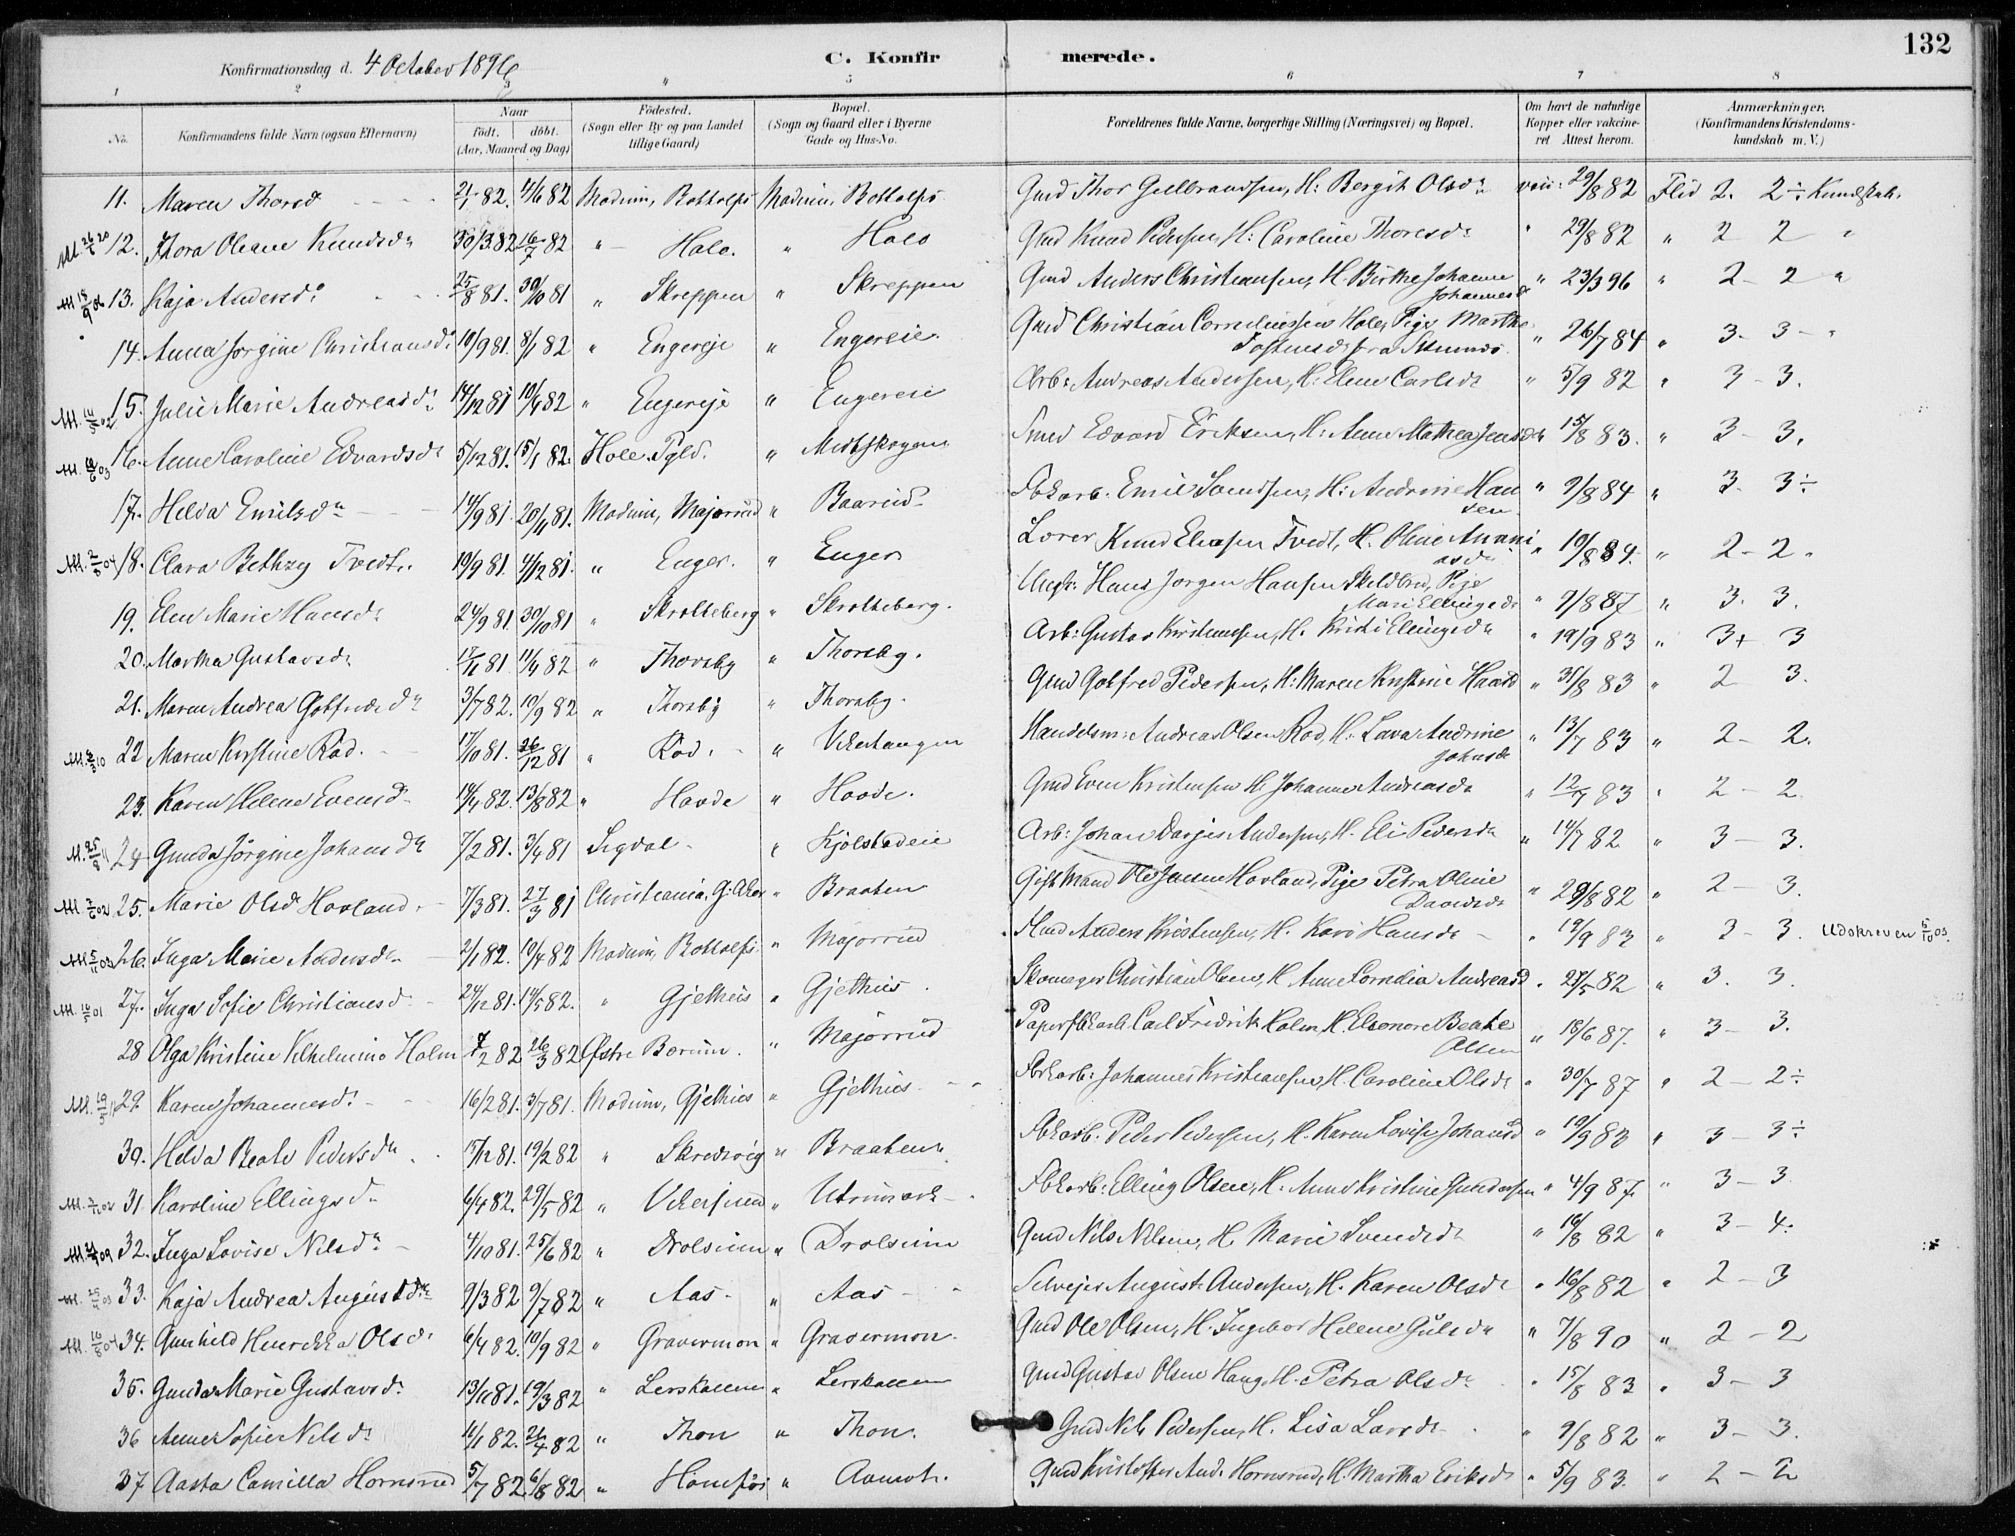 132
Konfirmationsdag d. 4 October 1896
C. Konfirmerede.
1 2 3 4 5 6 7 8
No. Konfirmandens fulde Navn (ogsaa Efternavn) Naar födt. döbt. (Aar, Maaned og Dag) Födested. (Sogn eller By og paa Landet tillige Gaard) Bopæl. (Sogn og Gaard eller i Byerne Gade og Hus-No. Forældrenes fulde Navne, borgerlige Stilling (Næringsvei) og Bopæl. Om havt de naturlige Kopper eller vakcineret Attest herom. Anmærkninger. (Konfirmandens Kristendomskundskab m. V.)
11. Maren Thorsd 2/1 82. 4/6 82 Modum, Bottolfs Modum, Bottolfs Gmd Thor Gulbrandsen, H: Bergit Olsdr vac: 29/8 82 Flid 2. 2÷ Kundskab.
12. Thora Oleane Knudsdr 30/3 82 16/7 82 " Holo. " Holo Gmd Knud Pedersen, H: Caroline Thoresdr " 29/8 82 " 2 2 "
13. Kaja Andersdr 25/8 81. 30/10 81 " Skreppen " Skreppen Gmd Anders Christiansen, H. Birthe Johanne Johannesd " 23/3 96 " 2 - 2 "
14. Anna Jørgine Christiansdr 10/9 81. 8/1 82 " Engereje " Engereie. Gmd Christian Corneliussen Hole, Pige Marthe " 26/7 84 " 3. 3 - "
15. Julie Marie Andreasdr 14/12 81 10/4 82 " Engereje " Engereie Arb: Andreas Andersen, H: Elene Carlsdr " 5/9 82 " 3 - 3.
16. Anne Caroline Edvardsdr 5/12 81. 15/1 82. Hole Pgld. " Midtskogen Smed Edvard Eriksen, H: Anne Mathea Jensdr 15/8 83. " 3 - 3.
17. Helda Emilsdr 14/9 81. 20/11 81. Modum, Majorrud " Baarud Fbkarb. Emil Svendsen, H: Andrine Hansen " 9/8 84 " 3. 3÷
18. Clara Bethzy Tvedt. 19/9 81. 4/12 81. " Enger. " Enger Lærer Knud Eliasen Tvedt, H. Oline Ananiasdr " 10/8 84. " 2 - 2.
19. Elen Marie Hansdr 24/9 81 30/10 81 " Skrolteberg " Skrolteberg. Ungk: Hans Jørgen Hansen Skildbred, Pige Mari Ellingsdr " 9/8 87 " 3. 3.
20. Martha Gustavsdr 17/11 81. 11/4 82 " Thorsby " Thorsby. Arb: Gustav Kristensen, H. Kristi Ellingsdr " 19/9 83 " 3+ 3
21. Maren Andrea Gotfredsdr 3/7 82. 10/9 82 " Thorsby " Thorsby. Gmd Gotfred Pedersen, H: Maren Kristine Haard " 31/8 83 " 2 3.
22 Maren Kristine Rød. 17/10 81. 26/12 81 " Rød. " Vikerhaugen Handelsm: Andreas Olsen Rød, H. Lava Andrine Johnsdr " 13/7 83 " 2 - 2.
23. Karen Helene Evensdr 14/4 82. 13/8 82 " Hovde " Hovde. Gmd Even Kristensen H. Johanne Andreasdr " 12/7 83 " 2 - 2.
24. Gunda Jørgine Johansdr 7/2 81. 3/4 81 Sigdal " Kjølstadeie Arb: Johan Darjus Andersen, H. Eli Pedersdr " 14/7 82 " 3 - 3.
25. Marie Olsd Hovland. 7/3 81. 27/3 81 Christiania, G: Aker " Braaten Gift Mand Ole Jensen Hovland, Pige Petra Oline Davidsdr " 29/8 82 " 2 - 3.
26. Inga Marie Andersdr 2/1 82. 10/4 82 Modum, Bottolfs " Majorrud Smd Anders Kristensen, H. Kari Hansdr - " 19/9 83 " 3 - 3. Udskreven 5/10 03.
27. Inga Sofie Christiansd. 24/12 81. 14/5 82. " Gjethus " Gjethus. Skomager Christian Olsen, H. Anne Cornelia Andreasd " 27/5 82 " 3. 3.
28 Olga Kristine Vilhelmine Holm 7/2 82 26/3 82 Østre Bærum. " Majorrud Papirfbkarb. Carl Fridrik Holm H. Eleonore Beate Olsen " 18/6 87. " 3 - 3.
29. Karen Johannesdr 16/2 81. 3/7 81. Modum, Gjethus " Gjethus Fbkarb: Johannes Kristiansen, H. Caroline Olsdr " 30/7 87 " 2 - 2÷
30. Helda Beate Pedersdr 15/12 81. 19/2 82 " Skredsvig " Braaten Fbkarb. Peder Pedersen, H. Karen Lovise Johansd " 19/9 83 " 3 - 3÷
31. Karoline Ellingsdr 6/4 82. 29/5 82 " Vikersund " Utsmark Fbkarb: Elling Olsen, H. Anne Kristine Gundersen " 4/9 87. " 3 - 3.
32. Inga Lovise Nilsdr 4/10 81. 25/6 82 " Drolsum " Drolsum Gmd Nils Nilsen, H. Marie Svendsdr " 16/8 82 " 3 - 4.
33. Kaja Andrea Augustdr 9/3 82 9/7 82 " Aas " Aas Selvejer August Andersen, H. Karen Olsdr " 16/8 82 " 2 - 3
34. Gunhild Henrikka Olsdr 6/4 82. 10/9 82 " Gravermon " Gravermon. Gmd Ole Olsen, H. Ingebor Helene Gulsdr " 7/8 90 " 2 - 2
35. Gunda Marie Gustavsdr 13/11 81. 19/3 82 " Lerskallen " Lerskallen Gmd Gustav Olsen Haug, H. Petra Olsdr " 15/8 83 " 3 - 3
36 Anne Sofie Nilsdr 11/1 82. 26/4 82 " Thon " Thon. Gmd Nils Pedersen, H. Lisa Larsdr " 9/8 82 " 3 - 3.
37 Aasta Camilla Hornsrud 5/7 82. 6/8 82 " Hønsføs " Aamot. Gmd Kristoffer And. Hornsrud, H. Martha Eriksdr " 5/9 83. " 2 - 2